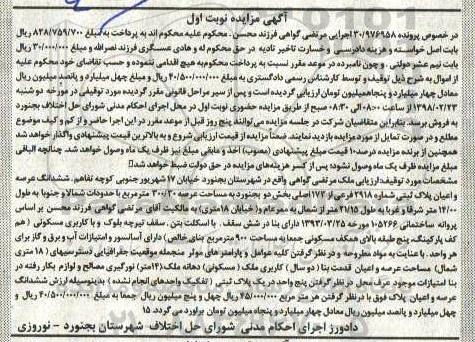 آگهی مزایده نوبت اول
در خصوص پرونده ۳۰/۹۷۶۹۵۸ اجرایی مرتضی گواهی فرزند محسن. محکوم علیه محکوم اند به پرداخت به مبلغ ۸۲۸/۷۵۹/۷۰۰ ریال
بابت اصل خواسته و هزینه دادرسی و خسارت تاخیر تادیه در حق محکوم له و هادی عسگری فرزند نصراله و مبلغ ۳۰/۰۰۰/۰۰۰ ریال
بابت نیم عشر دولتی. و چون نامبرده در موعد مقرر نسبت به پرداخت محکوم به هیچ اقدامی ننموده و حسب تقاضای خود محکوم علیه
از اموال به شرح ذیل توقیف و توسط کارشناس رسمی دادگستری به مبلغ ۴۰/۵۰۰/۰۰۰/۰۰۰ ریال و مبلغ چهل میلیارد و پانصد میلیون ریال
معادل چهار میلیارد و پنجاه میلیون تومان ارزیابی گردیده است و پس از سیر مراحل قانونی مقرر گردیده مورد توقیفی در مورخه دو شنبه
۱۳۹۸/۰۲/۲۳ از ساعت ۰۸:۰۰ الی ۰۸:۳۰ صبح از طریق مزایده حضوری نوبت اول در محل اجرای احکام مدنی شورای حل اختلاف بجنورد
به فروش برسد. بنابراین متقاضیان شرکت در جلسه مزایده می توانند پنج روز قبل از موعد مقرر در این اجرا حاضر و از کم و کیف موضوع
مطلع و در صورت تمایل از مورد مزایده بازدید نمایند. ضمناً مزایده از قیمت ارزیابی شروع و به بالاترین قیمت پیشنهادی واگذار خواهد شد
همچنین از برنده مزایده درصد۱۰ قیمت پیشنهادی (مصوب) اخذ و مابقی مبلغ نیز ظرف یک ماه وصول خواهد شد. چنانچه الباقی
مبلغ مزایده ظرف یک ماه وصول نشود؛ پس از کسر هزینه های مزایده در حق دولت ضبط خواهد شد.
مشخصات مورد توقیف: ارزیابی ملک مرتضی گواهی واقع در شهرستان بجنورد خیابان ۱۷ شهریور جنوبی کوچه تفاهم. ششدانگ عرصه
و اعیان پلاک ثبتی شماره ۲۹۱۸ فرعی از ۱۷۲ اصلی بخش دو بجنورد به مساحت عرصه ۳۰۰/۳۰ مترمربع با حدودات شمالا و جنوبا به طول
۱۴/۰۰ متر شرقا و غربا به طول ۲۱/۱۵ متر از شمال به معبر عام و( خیابان ۱۸متری) به مالکیت آقای مرتضی گواهی فرزند محسن بر اساس
پروانه ساختمانی ۱۰۵۲۶۶ مورخه ۱۳۹۳/۰۳/۲۵ دارای بنا در شش سقف . با اسکلت بتن . سقف تیرچه بلوک و با کاربری مسکونی ( هم
کف پارکینگ، پنج طبقه بالای همکف مسکونی جمعا به مساحت ۹۰۰ مترمربع بنای خالص) دارای آسانسور و امتیازات آب و برق و گاز برای
هر واحد. با عنایت به مواد مطروحه و در نظر گرفتن کلیه عوامل و پارامترهای موثر منجمله موقعیت جغرافیایی دسترسیهای (۱۸ متری
شمال) مساحت عرصه و اعیان قدمت بنا (دو سال) کاربری ملک (مسکونی) دهانه ملک (۱۴متر) نورگیری مصالح و لوازم بکار رفته در
بنا امتیازات موجود عرف محل و در نظر گرفتن پنج واحد در یک پلاک ثبتی. ( تفکیک واحدهای انجام نشده ) بدینوسیله ارزش ششدانگ
عرصه و اعیان پلاک فوق با درنظر گرفتن هر متر مربع ۴۵/۰۰۰/۰۰۰ ریال چهل و پنج میلیون ریال جمعا به مبلغ ۴۰/۵۰۰/۰۰۰/۰۰۰ ریال و
چهل میلیارد و پانصد میلیون ریال معادل چهار میلیارد و پنجاه میلیون تومان برآورد می گردد. ۱۵
دادورز اجرای احکام مدنی شورای حل اختلاف شهرستان بجنورد – نوروزی